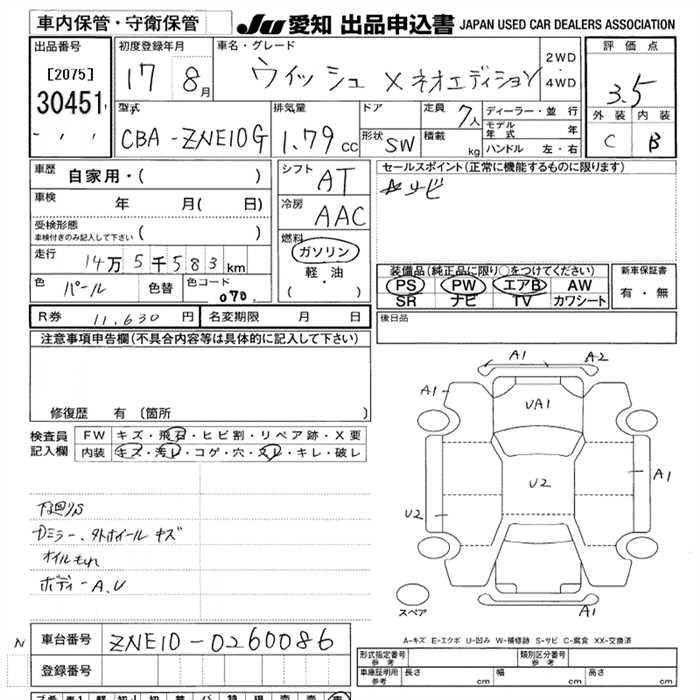 車内保管・守衛保管
JU 愛知 出品申込書 JAPAN USED CAR DEALERS ASSOCIATION
出品番号
[2075]
30451
初度登録年月
17 8月
車名・グレード
ウィッシュ X ネオエディション
2WD
4WD
評価点
3.5
外装 内装
C B
型式
CBA-ZNE10G
排気量
1.79cc
ドア
形状 SW
定員 7人
積載 kg
ディーラー・並行
モデル年式 年
ハンドル 左・右
車歴 自家用・( )
車検 年 月( 日)
受検形態
車検付きのみ記入して下さい ( )
走行 14万5千583km
色 パール 色替 色コード 070
シフト AT
冷房 AAC
燃料
ガソリン
軽・油
( ・ )
セールスポイント(正常に機能するものに限ります)
サビ
装備品(純正品に限り○をつけてください)
PS PW エアB AW
SR ナビ TV カワシート
新車保証書
有・無
R券 11,630円 名変期限 月 日
後日品
注意事項申告欄(不具合内容等は具体的に記入して下さい)
修復歴 有 〔箇所 〕
検査員記入欄
FW キズ・飛石・ヒビ割・リペア跡・X要
内装 キズ・汚レ・コゲ・穴・スレ・キレ・破レ
下廻りS
Dミラー、タトホイール キズ
オイルもれ
ボディーA,U
A1 A2
A1
UA1
A1
U2
U2
A1
スペア
A-キズ E-エクボ U-凹み W-補修跡 S-サビ C-腐食 XX-交換済
N 車台番号 ZNE10-0260086
登録番号
形式指定番号 参考
類別区分番号 参考
車庫証明用 参考 長さ cm 幅 cm 高さ cm